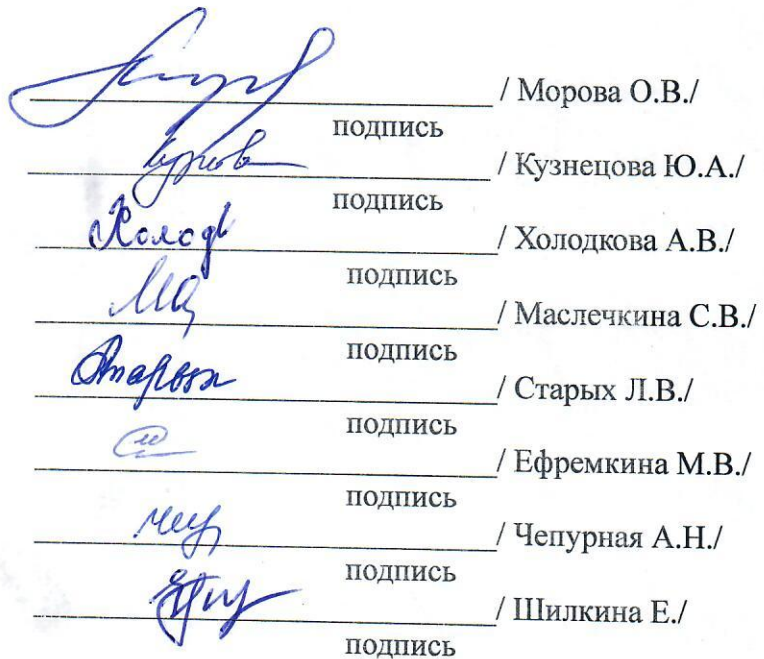 / Морова О.В./
подпись
/ Кузнецова Ю.А./
подпись
Холод / Холодкова А.В./
подпись
/ Маслечкина С.В./
подпись
Старых / Старых Л.В./
подпись
/ Ефремкина М.В./
подпись
/ Чепурная А.Н./
подпись
/ Шилкина Е./
подпись